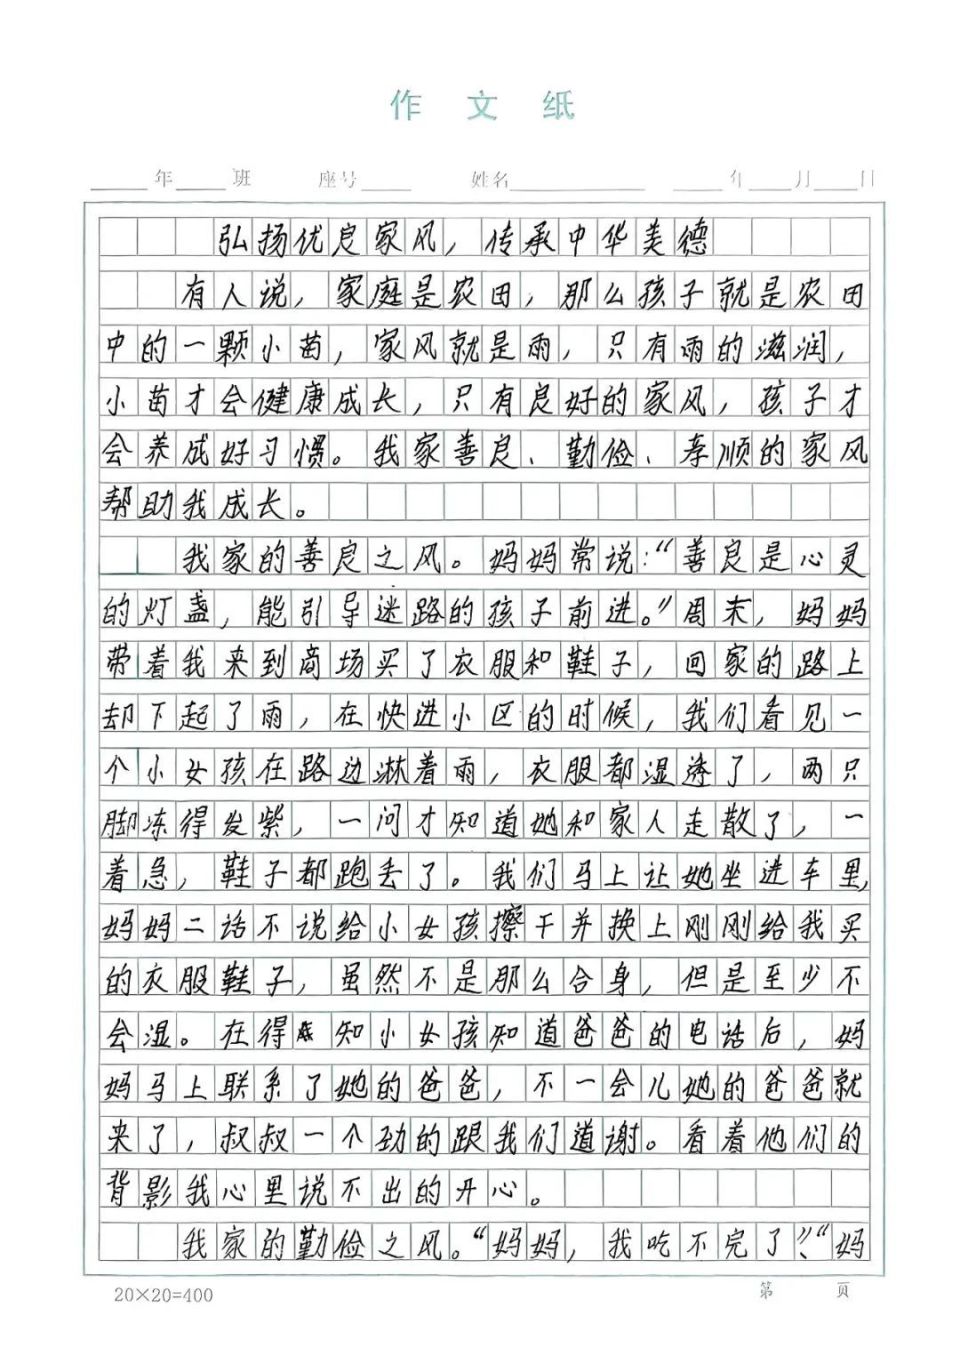 作 文 纸
年 班 座号 姓名 年 月 日
弘扬优良家风，传承中华美德
有人说，家庭是农田，那么孩子就是农田
中的一颗小苗，家风就是雨，只有雨的滋润，
小苗才会健康成长，只有良好的家风，孩子才
会养成好习惯。我家善良、勤俭、孝顺的家风
帮助我成长。
我家的善良之风。妈妈常说：“善良是心灵
的灯盏，能引导迷路的孩子前进。”周末，妈妈
带着我来到商场买了衣服和鞋子，回家的路上
却下起了雨，在快进小区的时候，我们看见一
个小女孩在路边淋着雨，衣服都湿透了，两只
脚冻得发紫，一问才知道她和家人走散了，一
着急，鞋子都跑丢了。我们马上让她坐进车里，
妈妈二话不说给小女孩擦干并换上刚刚给我买
的衣服鞋子，虽然不是那么合身，但是至少不
会湿。在得知小女孩知道爸爸的电话后，妈
妈马上联系了她的爸爸，不一会儿她的爸爸就
来了，叔叔一个劲的跟我们道谢。看着他们的
背影我心里说不出的开心。
我家的勤俭之风。“妈妈，我吃不完了”、“妈
20×20=400 第 页